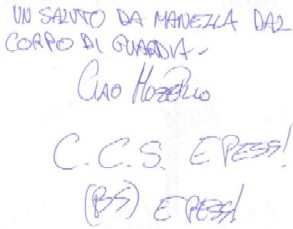 UN SALUTO DA MANEZLA DAL
CORPO DI GUARDIA -
CIAO
C.C.S. E PESS!
(BS) E PESS!